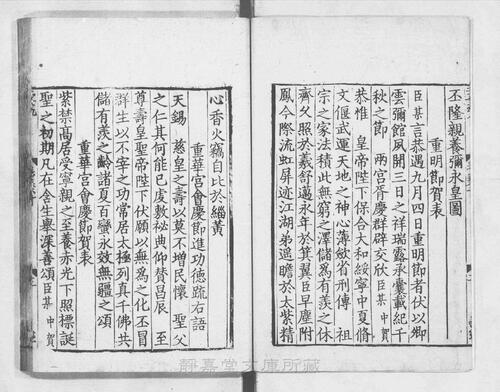 丕隆親養彌永皇圖
重明節賀表
臣某言恭遇九月四日重明節者伏以卿
雲彌館風開三日之祥瑞露承囊載紀千
秋之節　兩宮胥慶群辟交欣臣某中賀
恭惟　皇帝陛下保合大和綏寧中夏脩
文偃武運天地之神心薄斂省刑傳　祖
宗之家法積此無窮之澤儲為有羨之休
齊父照於羲舒邁永年於箕翼臣早塵附
鳳今際流虹屏迹江湖弟遐瞻於太紫精
心香火竊自比於緇黃
重華宮會慶節進功德疏右語
天錫　慈皇之壽以莫不增民懷　聖父
之仁其何能已虔敷秘典仰賛昌辰　至
尊壽皇聖帝陛下伏願以無為之化丕冒
群生以不宰之功常居太極列真千佛共
儲有羨之齡諸夏百蠻永效無疆之頌
重華宮會慶節賀表
紫禁高居受寧親之至養赤光下照標誕
聖之初期凡在含生舉深善頌臣某中賀
靜嘉堂文庫所藏